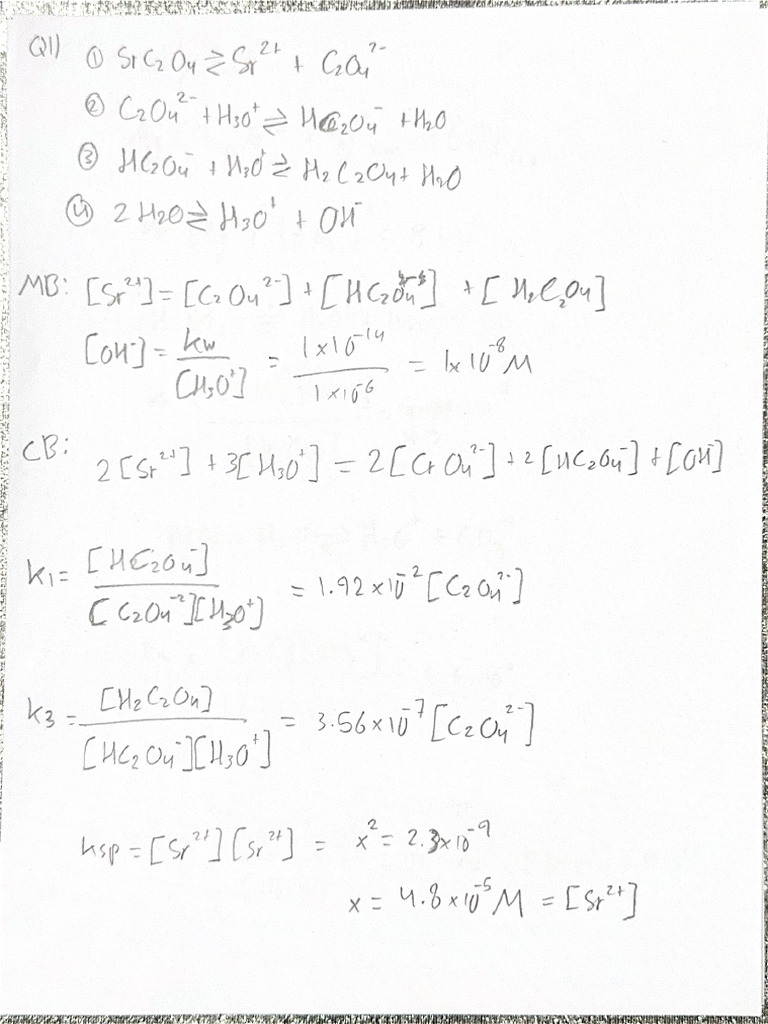 Q1) ① SrC₂O₄ ⇌ Sr²⁺ + C₂O₄²⁻
② C₂O₄²⁻ + H₃O⁺ ⇌ HC₂O₄⁻ + H₂O
③ HC₂O₄⁻ + H₃O⁺ ⇌ H₂C₂O₄ + H₂O
④ 2H₂O ⇌ H₃O⁺ + OH⁻
MB: [Sr²⁺] = [C₂O₄²⁻] + [HC₂O₄⁻] + [H₂C₂O₄]
[OH⁻] = Kw / [H₃O⁺] = 1×10⁻¹⁴ / 1×10⁻⁶ = 1×10⁻⁸ M
CB: 2[Sr²⁺] + 3[H₃O⁺] = 2[CrO₄²⁻] + 2[HC₂O₄⁻] + [OH⁻]
K₁ = [HC₂O₄⁻] / [C₂O₄⁻²][H₃O⁺] = 1.92×10⁻² [C₂O₄²⁻]
K₃ = [H₂C₂O₄] / [HC₂O₄⁻][H₃O⁺] = 3.56×10⁻⁷ [C₂O₄²⁻]
Ksp = [Sr²⁺][Sr²⁺] = x² = 2.3×10⁻⁹
x = 4.8×10⁻⁵ M = [Sr²⁺]